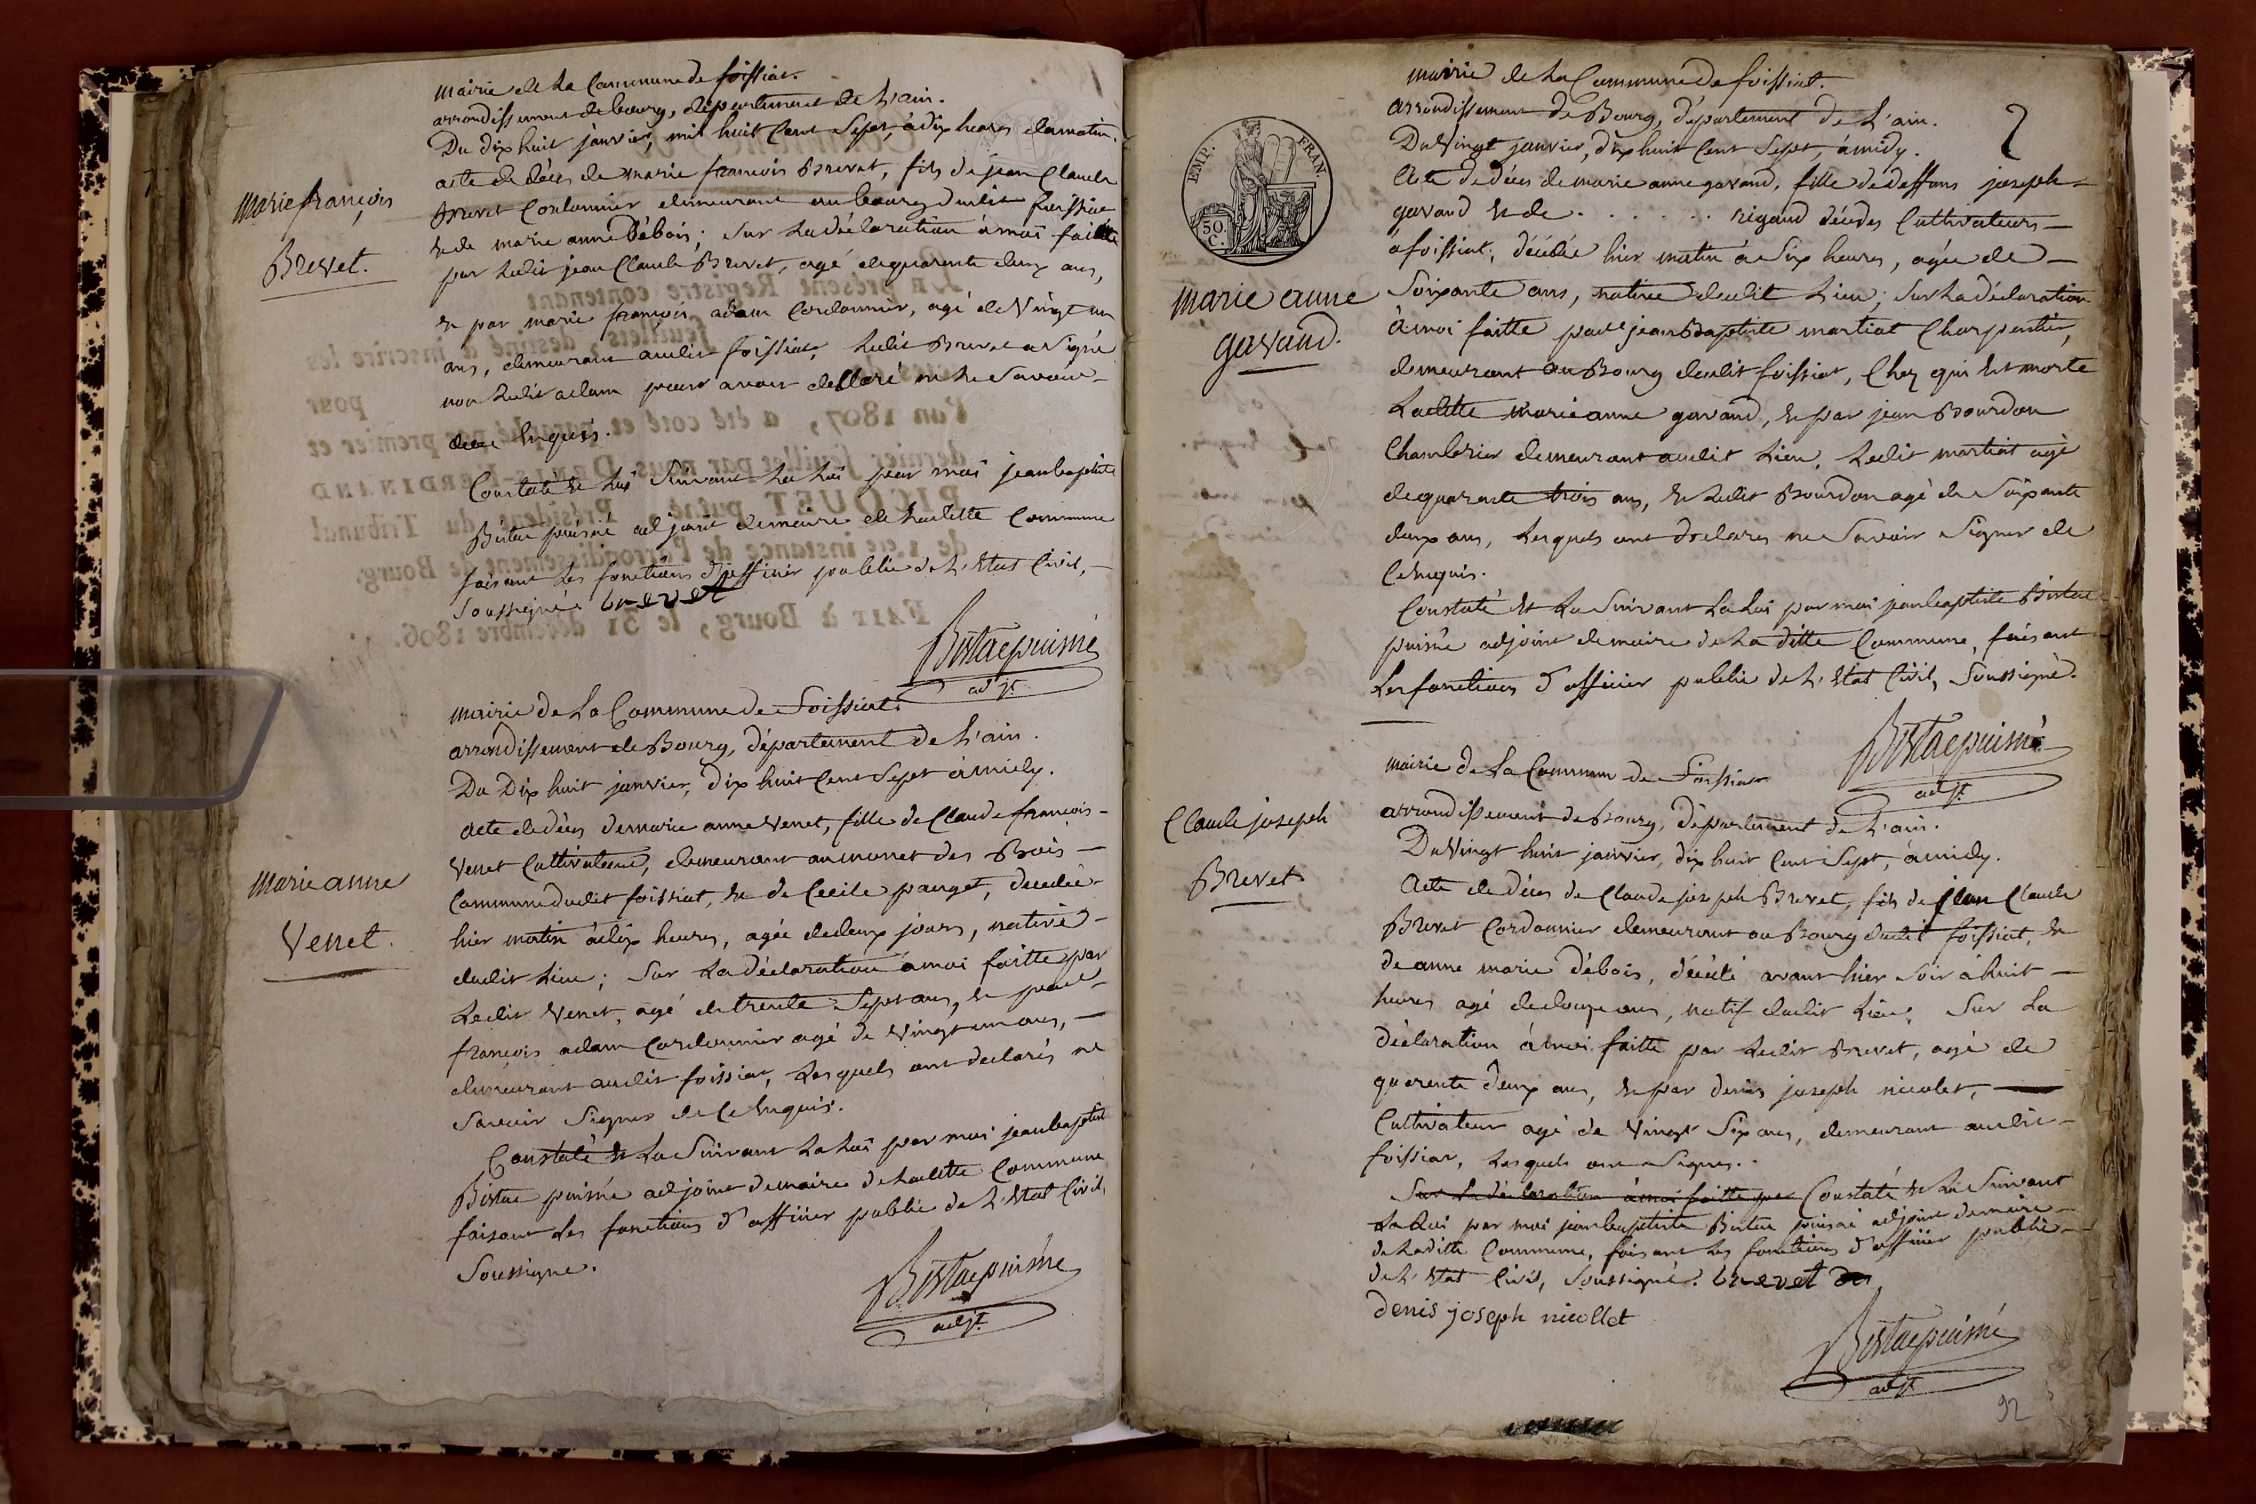 mairie de La Commune de foissiat.
arrondissement de bourg, département de L'ain.
Du dix huit janvier, mil huit Cent Sept, à dix heures du matin.
acte de décès de marie francois Brevet, fils de jean Claude
Brevet Cordonnier demeurant au bourg dudit foissiat
et de marie anne Débois; Sur La déclaration à moi faitte
par Ledit jean Claude Brevet, agé de quarente deux ans,
et par marie françois adam Cordonnier, agé de Vingt un
ans, demeurant audit foissiat, Ledit Brevet a Signé
non Ledit adam pour avoir declaré ne Le Savoir
de ce Enquis.
Constaté Suivant La Loi par moi jean baptiste
Bistac puisné adjoint de maire de Laditte Commune
faisant Les fonctions d'officier public de L'Etat Civil,
Soussigné. brevet
Bistac puisné
adjt.
marie françois
Brevet.
mairie de La Commune de Foissiat.
arrondissement de Bourg, département de L'ain.
Du Dix huit janvier, dix huit Cent Sept à midy.
acte de décès de marie anne Venet, fille de Claude françois
Venet Cultivateur, demeurant au monet des Bois
Commune dudit foissiat, et de Cecile pauget, decedée
hier matin à dix heures, agée de deux jours, native
dudit Lieu; Sur La déclaration à moi faitte par
Ledit Venet, agé de trente Sept ans, et par
françois adam Cordonnier agé de Vingt un ans,
demeurant audit foissiat, Lesquels ont declarés ne
Savoir Signer de Ce Enquis.
Constaté Suivant La Loi par moi jean baptiste
Bistac puisné adjoint de maire de Laditte Commune
faisant Les fonctions d'officier public de L'Etat Civil,
Soussigné.
Bistac puisné
adjt.
marie anne
Venet.
mairie de La Commune de foissiat.
arrondissement de Bourg, département de L'ain.
2
Du Vingt janvier, dix huit Cent Sept, à midy.
Acte de décès de marie anne gavand, fille de deffans joseph
gavand et de . . . . . . rigaud décédés Cultivateurs
à foissiat, décédée hier matin à Six heures, agée de
Soixante ans, native dudit Lieu; Sur La déclaration
à moi faitte par jean Baptiste martiat Charpentier,
demeurant au Bourg dudit foissiat, Chez qui Est morte
Laditte marie anne gavand, et par jean Bourdon
demeurant audit Lieu. Ledit martiat agé
de quarante trois ans, et Ledit Bourdon agé de Soixante
deux ans, Lesquels ont declarés ne Savoir Signer de
Ce Enquis.
Constaté Suivant La Loi par moi jean baptiste Bistac
puisné adjoint de maire de La ditte Commune, faisant
Les fonctions d'officier public de L'Etat Civil, Soussigné.
Bistac puisné
adjt.
EMP. FRAN.
50.
C.
marie anne
gavand.
mairie de La Commune de Foissiat
arrondissement de Bourg, département de L'ain.
Du Vingt huit janvier, dix huit Cent Sept, à midy.
Acte de décès de Claude joseph Brevet, fils de jean Claude
Brevet Cordonnier demeurant au Bourg dudit foissiat, et
de anne marie débois, décédé avant hier Soir à huit
heures agé de douze ans, natif dudit Lieu; Sur La
déclaration à moi faitte par Ledit Brevet, agé de
quarente deux ans, et par denis joseph nicolet,
Cultivateur agé de Vingt Six ans, demeurant audit
foissiat, Lesquels ont Signés.
Sur La déclaration à moi faitte par Constaté Suivant
La Loi par moi jean baptiste Bistac puisné adjoint de maire
de Laditte Commune, faisant Les fonctions d'officier public
de L'Etat Civil, Soussigné. brevet
denis joseph nicollet
Bistac puisné
adjt
Claude joseph
Brevet
92
Le présent Registre contenant
feuillets, destiné à inscrire les
pour
l'an 1807, a été coté et paraphé par premier et
dernier feuillet par nous DENIS-FERDINAND
PICQUET puîné, Président du Tribunal
de 1.ere instance de l'arrondissement de Bourg.
FAIT à Bourg, le 31 décembre 1806.